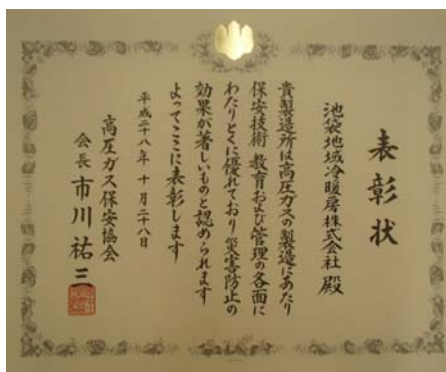 表彰状
池袋地域冷暖房株式会社 殿
貴製造所は高圧ガスの製造にあたり
保安技術 教育および管理の各面に
わたりとくに優れており災害防止の
効果が著しいものと認められます
よってここに表彰します
平成二十八年 十 月二十八日
高圧ガス保安協会
会長 市川祐三